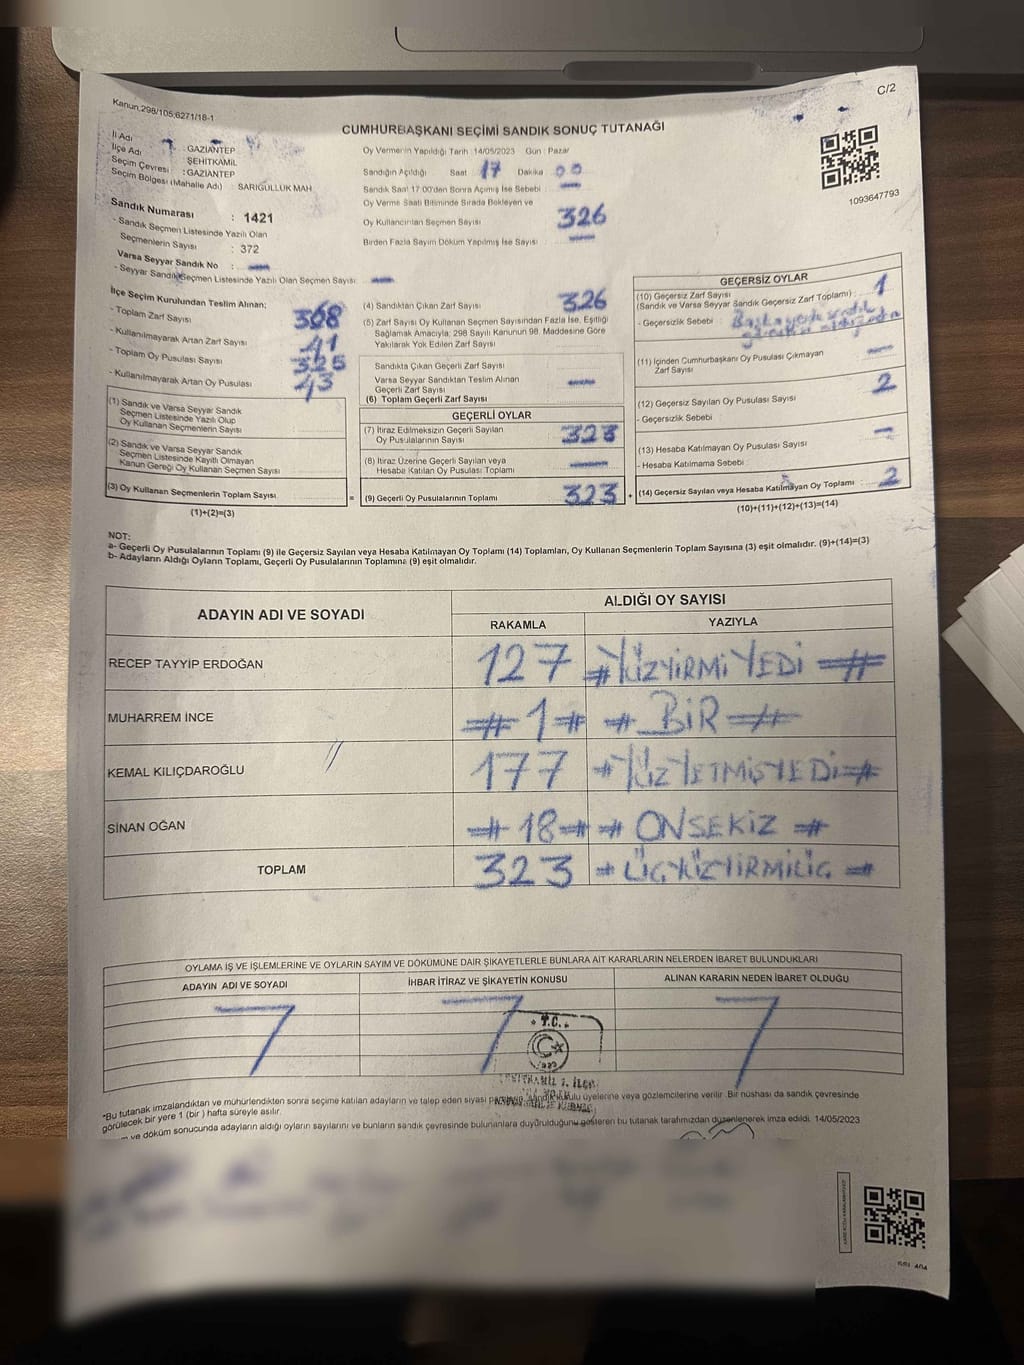 Kanun,298/105;6271/18-1
C/2
CUMHURBAŞKANI SEÇİMİ SANDIK SONUÇ TUTANAĞI
İl Adı : GAZİANTEP
İlçe Adı ŞEHİTKAMİL
Seçim Çevresi : GAZİANTEP
Seçim Bölgesi (Mahalle Adı) : SARIGÜLLÜK MAH
Sandık Numarası : 1421
- Sandık Seçmen Listesinde Yazılı Olan
Seçmenlerin Sayısı : 372
Varsa Seyyar Sandık No :
- Seyyar Sandık Seçmen Listesinde Yazılı Olan Seçmen Sayısı
Oy Vermenin Yapıldığı Tarih :14/05/2023 Gün : Pazar
Sandığın Açıldığı Saat 17 Dakika 00
Sandık Saat 17.00'den Sonra Açılmış İse Sebebi :
Oy Verme Saati Bitiminde Sırada Bekleyen ve
Oy Kullandırılan Seçmen Sayısı 326
Birden Fazla Sayım Döküm Yapılmış İse Sayısı :
1093647793
İlçe Seçim Kurulundan Teslim Alınan:
- Toplam Zarf Sayısı 368
- Kullanılmayarak Artan Zarf Sayısı 41
- Toplam Oy Pusulası Sayısı 325
- Kullanılmayarak Artan Oy Pusulası 43
(1) Sandık ve Varsa Seyyar Sandık
Seçmen Listesinde Yazılı Olup
Oy Kullanan Seçmenlerin Sayısı
(2) Sandık ve Varsa Seyyar Sandık
Seçmen Listesinde Kayıtlı Olmayan
Kanun Gereği Oy Kullanan Seçmen Sayısı
(3) Oy Kullanan Seçmenlerin Toplam Sayısı =
(1)+(2)=(3)
(4) Sandıktan Çıkan Zarf Sayısı 326
(5) Zarf Sayısı Oy Kullanan Seçmen Sayısından Fazla İse, Eşitliği
Sağlamak Amacıyla; 298 Sayılı Kanunun 98. Maddesine Göre
Yakılarak Yok Edilen Zarf Sayısı
Sandıkta Çıkan Geçerli Zarf Sayısı
Varsa Seyyar Sandıktan Teslim Alınan
Geçerli Zarf Sayısı
(6) Toplam Geçerli Zarf Sayısı
GEÇERLİ OYLAR
(7) İtiraz Edilmeksizin Geçerli Sayılan
Oy Pusulalarının Sayısı 323
(8) İtiraz Üzerine Geçerli Sayılan veya
Hesaba Katılan Oy Pusulası Toplamı
(9) Geçerli Oy Pusulalarının Toplamı 323 +
GEÇERSİZ OYLAR
(10) Geçersiz Zarf Sayısı 1
(Sandık ve Varsa Seyyar Sandık Geçersiz Zarf Toplamı) :
- Geçersizlik Sebebi :
(11) İçinden Cumhurbaşkanı Oy Pusulası Çıkmayan
Zarf Sayısı
(12) Geçersiz Sayılan Oy Pusulası Sayısı 2
- Geçersizlik Sebebi :
(13) Hesaba Katılmayan Oy Pusulası Sayısı
- Hesaba Katılmama Sebebi :
(14) Geçersiz Sayılan veya Hesaba Katılmayan Oy Toplamı : 2
(10)+(11)+(12)+(13)=(14)
NOT:
a- Geçerli Oy Pusulalarının Toplamı (9) ile Geçersiz Sayılan veya Hesaba Katılmayan Oy Toplamı (14) Toplamları, Oy Kullanan Seçmenlerin Toplam Sayısına (3) eşit olmalıdır. (9)+(14)=(3)
b- Adayların Aldığı Oyların Toplamı, Geçerli Oy Pusulalarının Toplamına (9) eşit olmalıdır.
ADAYIN ADI VE SOYADI ALDIĞI OY SAYISI
RAKAMLA YAZIYLA
RECEP TAYYİP ERDOĞAN 127 # YÜZYİRMİ YEDİ #
MUHARREM İNCE # 1 # # BİR #
KEMAL KILIÇDAROĞLU 177 # YÜZ YETMİŞYEDİ #
SİNAN OĞAN # 18 # # ONSEKİZ #
TOPLAM 323 # ÜÇYÜZYİRMİÜÇ #
OYLAMA İŞ VE İŞLEMLERİNE VE OYLARIN SAYIM VE DÖKÜMÜNE DAİR ŞİKAYETLERLE BUNLARA AİT KARARLARIN NELERDEN İBARET BULUNDUKLARI
ADAYIN ADI VE SOYADI İHBAR İTİRAZ VE ŞİKAYETİN KONUSU ALINAN KARARIN NEDEN İBARET OLDUĞU
* T.C. *
*Bu tutanak imzalandıktan ve mühürlendikten sonra seçime katılan adayların ve talep eden siyasi sandık kurulu üyelerine veya gözlemcilerine verilir. Bir nüshası da sandık çevresinde
görülecek bir yere 1 (bir ) hafta süreyle asılır.
ve döküm sonucunda adayların aldığı oyların sayılarını ve bunların sandık çevresinde bulunanlara duyurulduğunu gösteren bu tutanak tarafımızdan düzenlenerek imza edildi. 14/05/2023